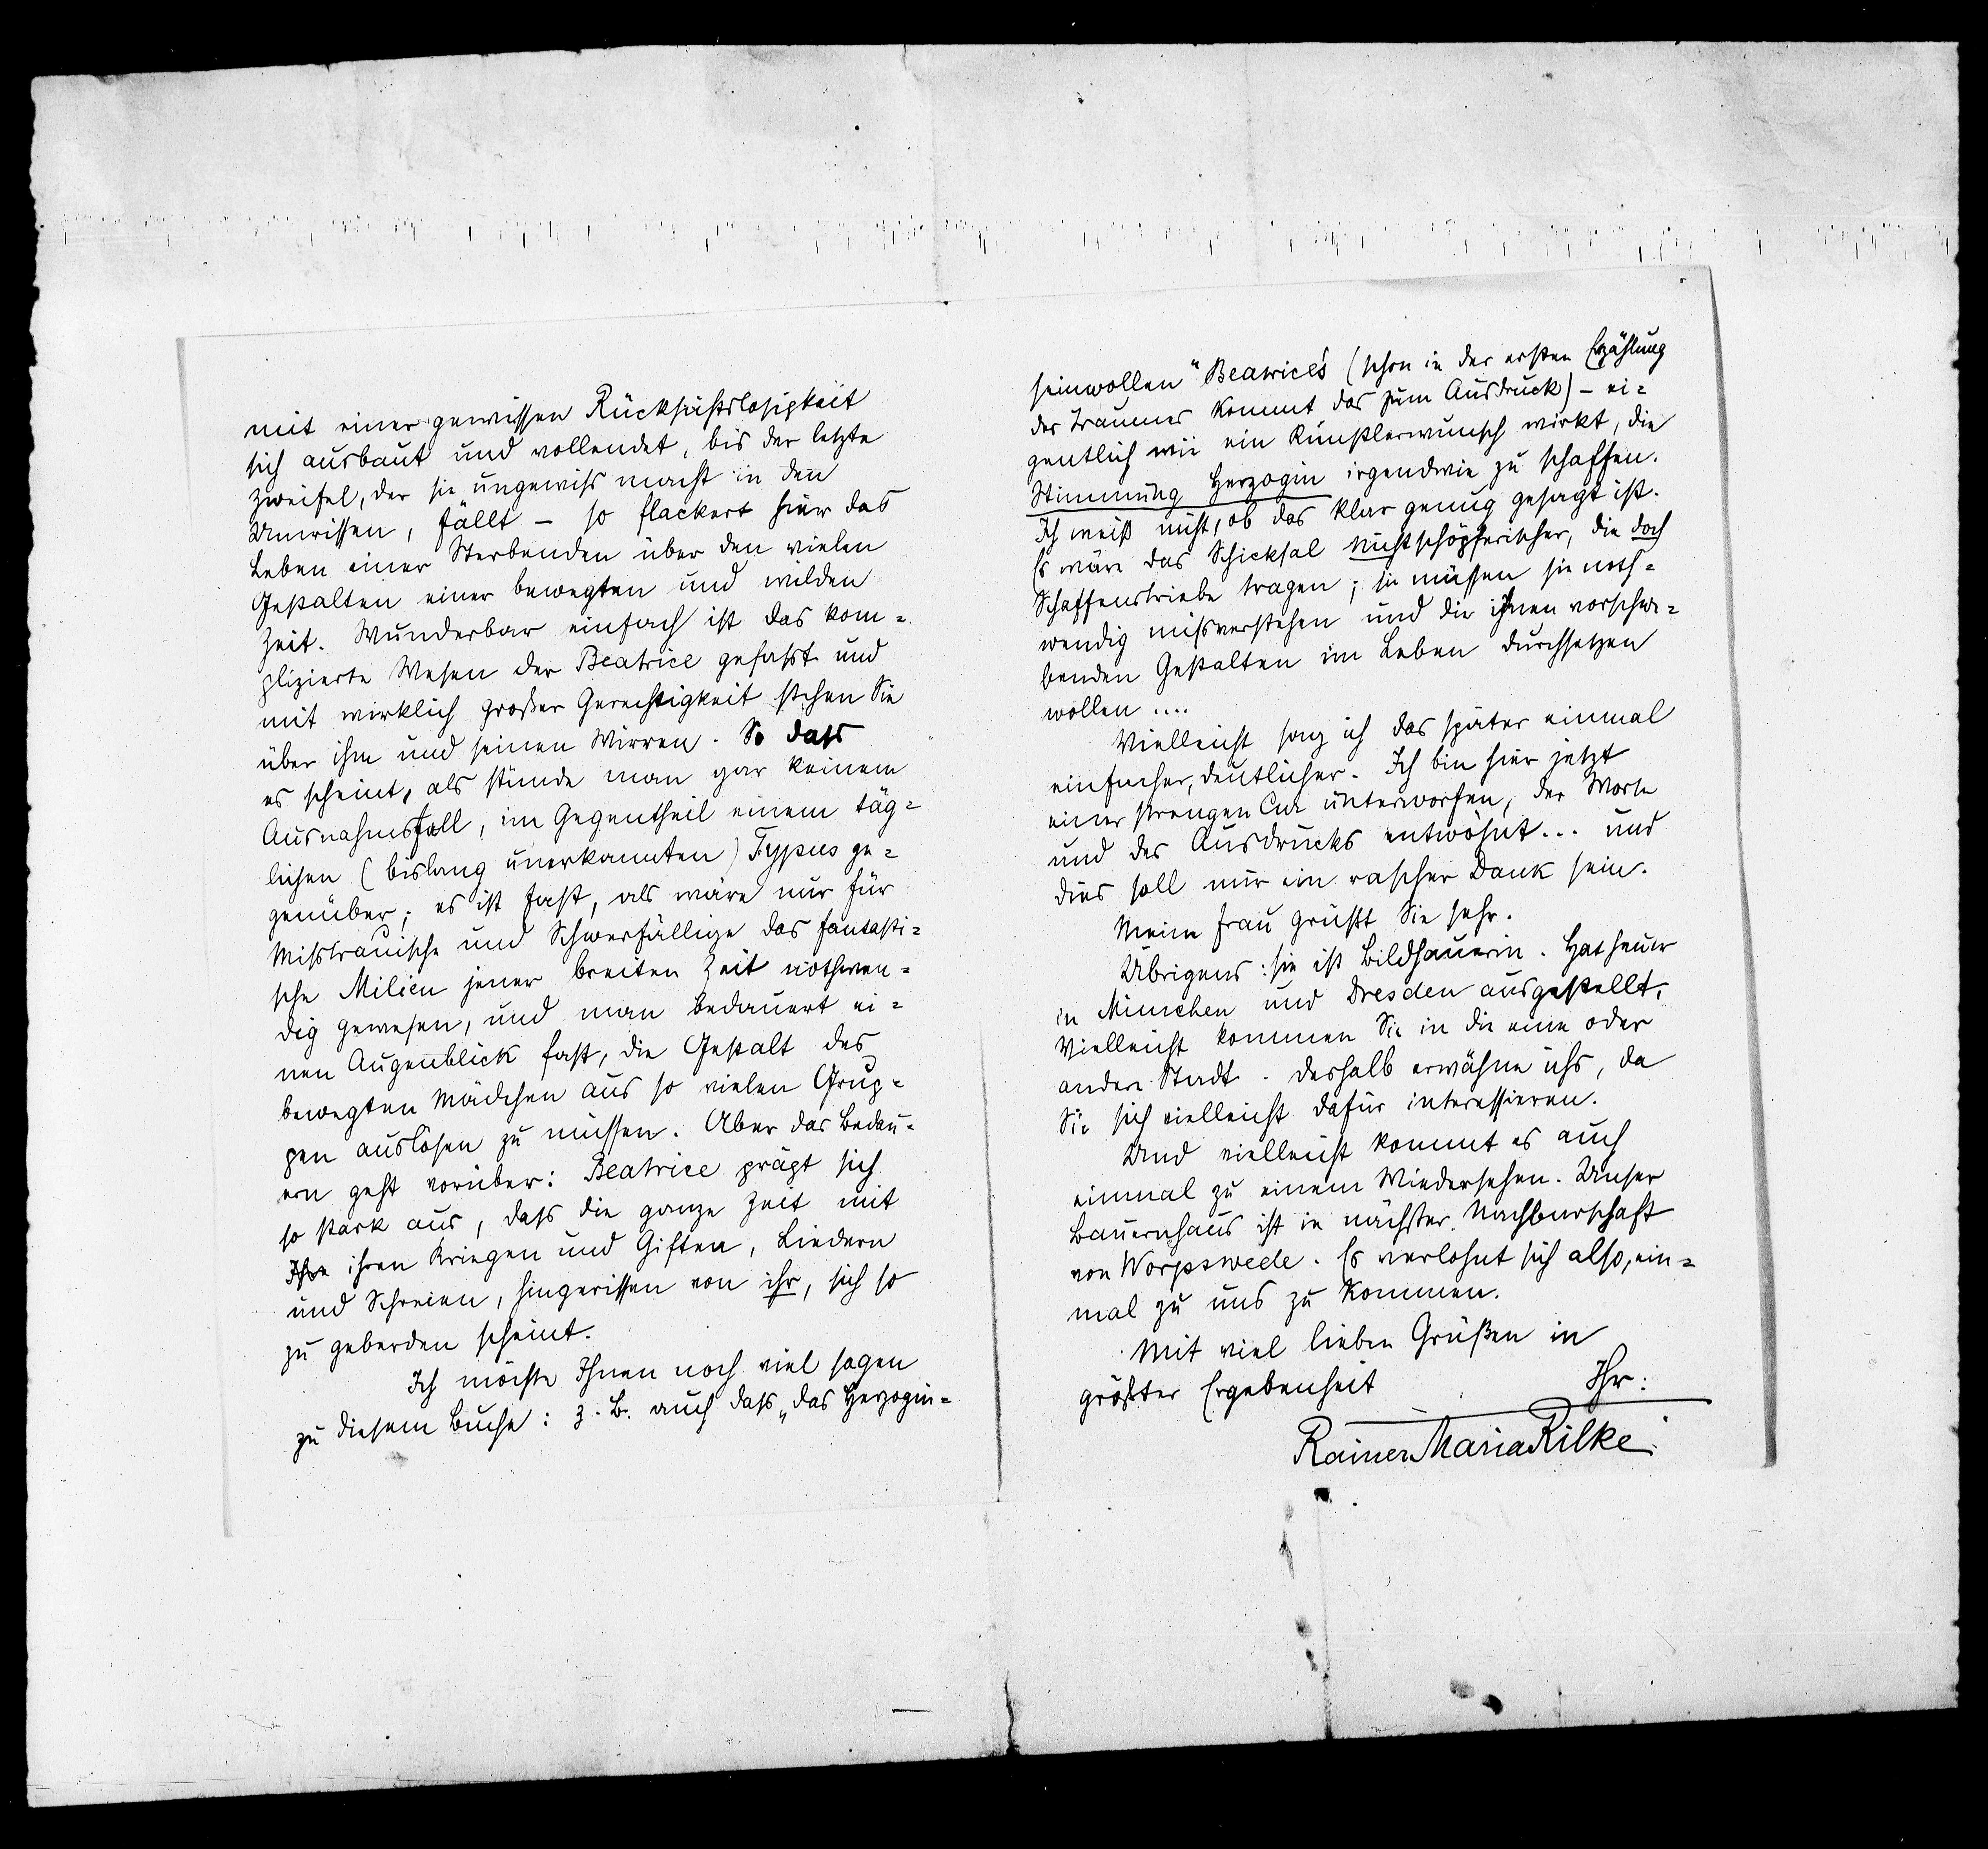 mit einer gewissen Rücksichtslosigkeit
sich ausbaut und vollendet, bis der letzte
Zweifel, der sie ungewiss macht in den
Umrissen, fällt – so flackert hier das
Leben einer Sterbenden über den vielen
Gestalten einer bewegten und wilden
Zeit. Wunderbar einfach ist das kom=
plizierte Wesen der Beatrice gefasst und
mit wirklich großer Gerechtigkeit stehen Sie
über ihm und seinen Wirren. So dass
es scheint, als stünde man gar keinem
Ausnahmsfall, im Gegentheil einem täg=
lichen (bislang unerkannten) Typus ge=
genüber; es ist fast, als wäre nur für
Misstrauische und Schwerfällige das fantasti=
sche Milieu jener breiten Zeit nothwen=
dig gewesen, und man bedauert ei=
nen Augenblick fast, die Gestalt des
bewegten Mädchen aus so vielen Grup=
pen auslösen zu müssen. Aber das Bedau=
ern geht vorüber: Beatrice prägt sich
so stark aus, dass die ganze Zeit mit
ihren Kriegen und Giften, Liedern
und Schreien, hingerissen von ihr, sich so
zu geberden scheint.
Ich möchte Ihnen noch viel sagen
zu diesem Buche: z. B. auch dass „das Herzogin=
seinwollen" Beatrice's (schon in der ersten Erzählung
des Traumes kommt das zum Ausdruck) – ei=
gentlich wie ein Künstlerwunsch wirkt, die
Stimmung Herzogin irgendwie zu schaffen.
Ich weiß nicht, ob das klar genug gesagt ist.
Es wäre das Schicksal Nichtschöpferischer, die doch
Schaffenstriebe tragen; sie müssen sie noth=
wendig missverstehen und die ihnen vorschwe=
benden Gestalten im Leben durchsetzen
wollen ....
Vielleicht sag ich das später einmal
einfacher, deutlicher. Ich bin hier jetzt
einer strengen Cur unterworfen, der Worte
und des Ausdrucks entwöhnt... und
dies soll nur ein rascher Dank sein.
Meine Frau grüßt Sie sehr.
Übrigens: sie ist Bildhauerin. Hat heuer
in München und Dresden ausgestellt.
Vielleicht kommen Sie in die eine oder
andere Stadt. Deshalb erwähne ichs, da
Sie sich vielleicht dafür interessieren.
Und vielleicht kommt es auch
einmal zu einem Wiedersehen. Unser
Bauernhaus ist in nächster Nachbarschaft
von Worpswede. Es verlohnt sich also, ein=
mal zu uns zu kommen.
Mit viel lieben Grüßen in
größter Ergebenheit Ihr:
Rainer Maria Rilke.